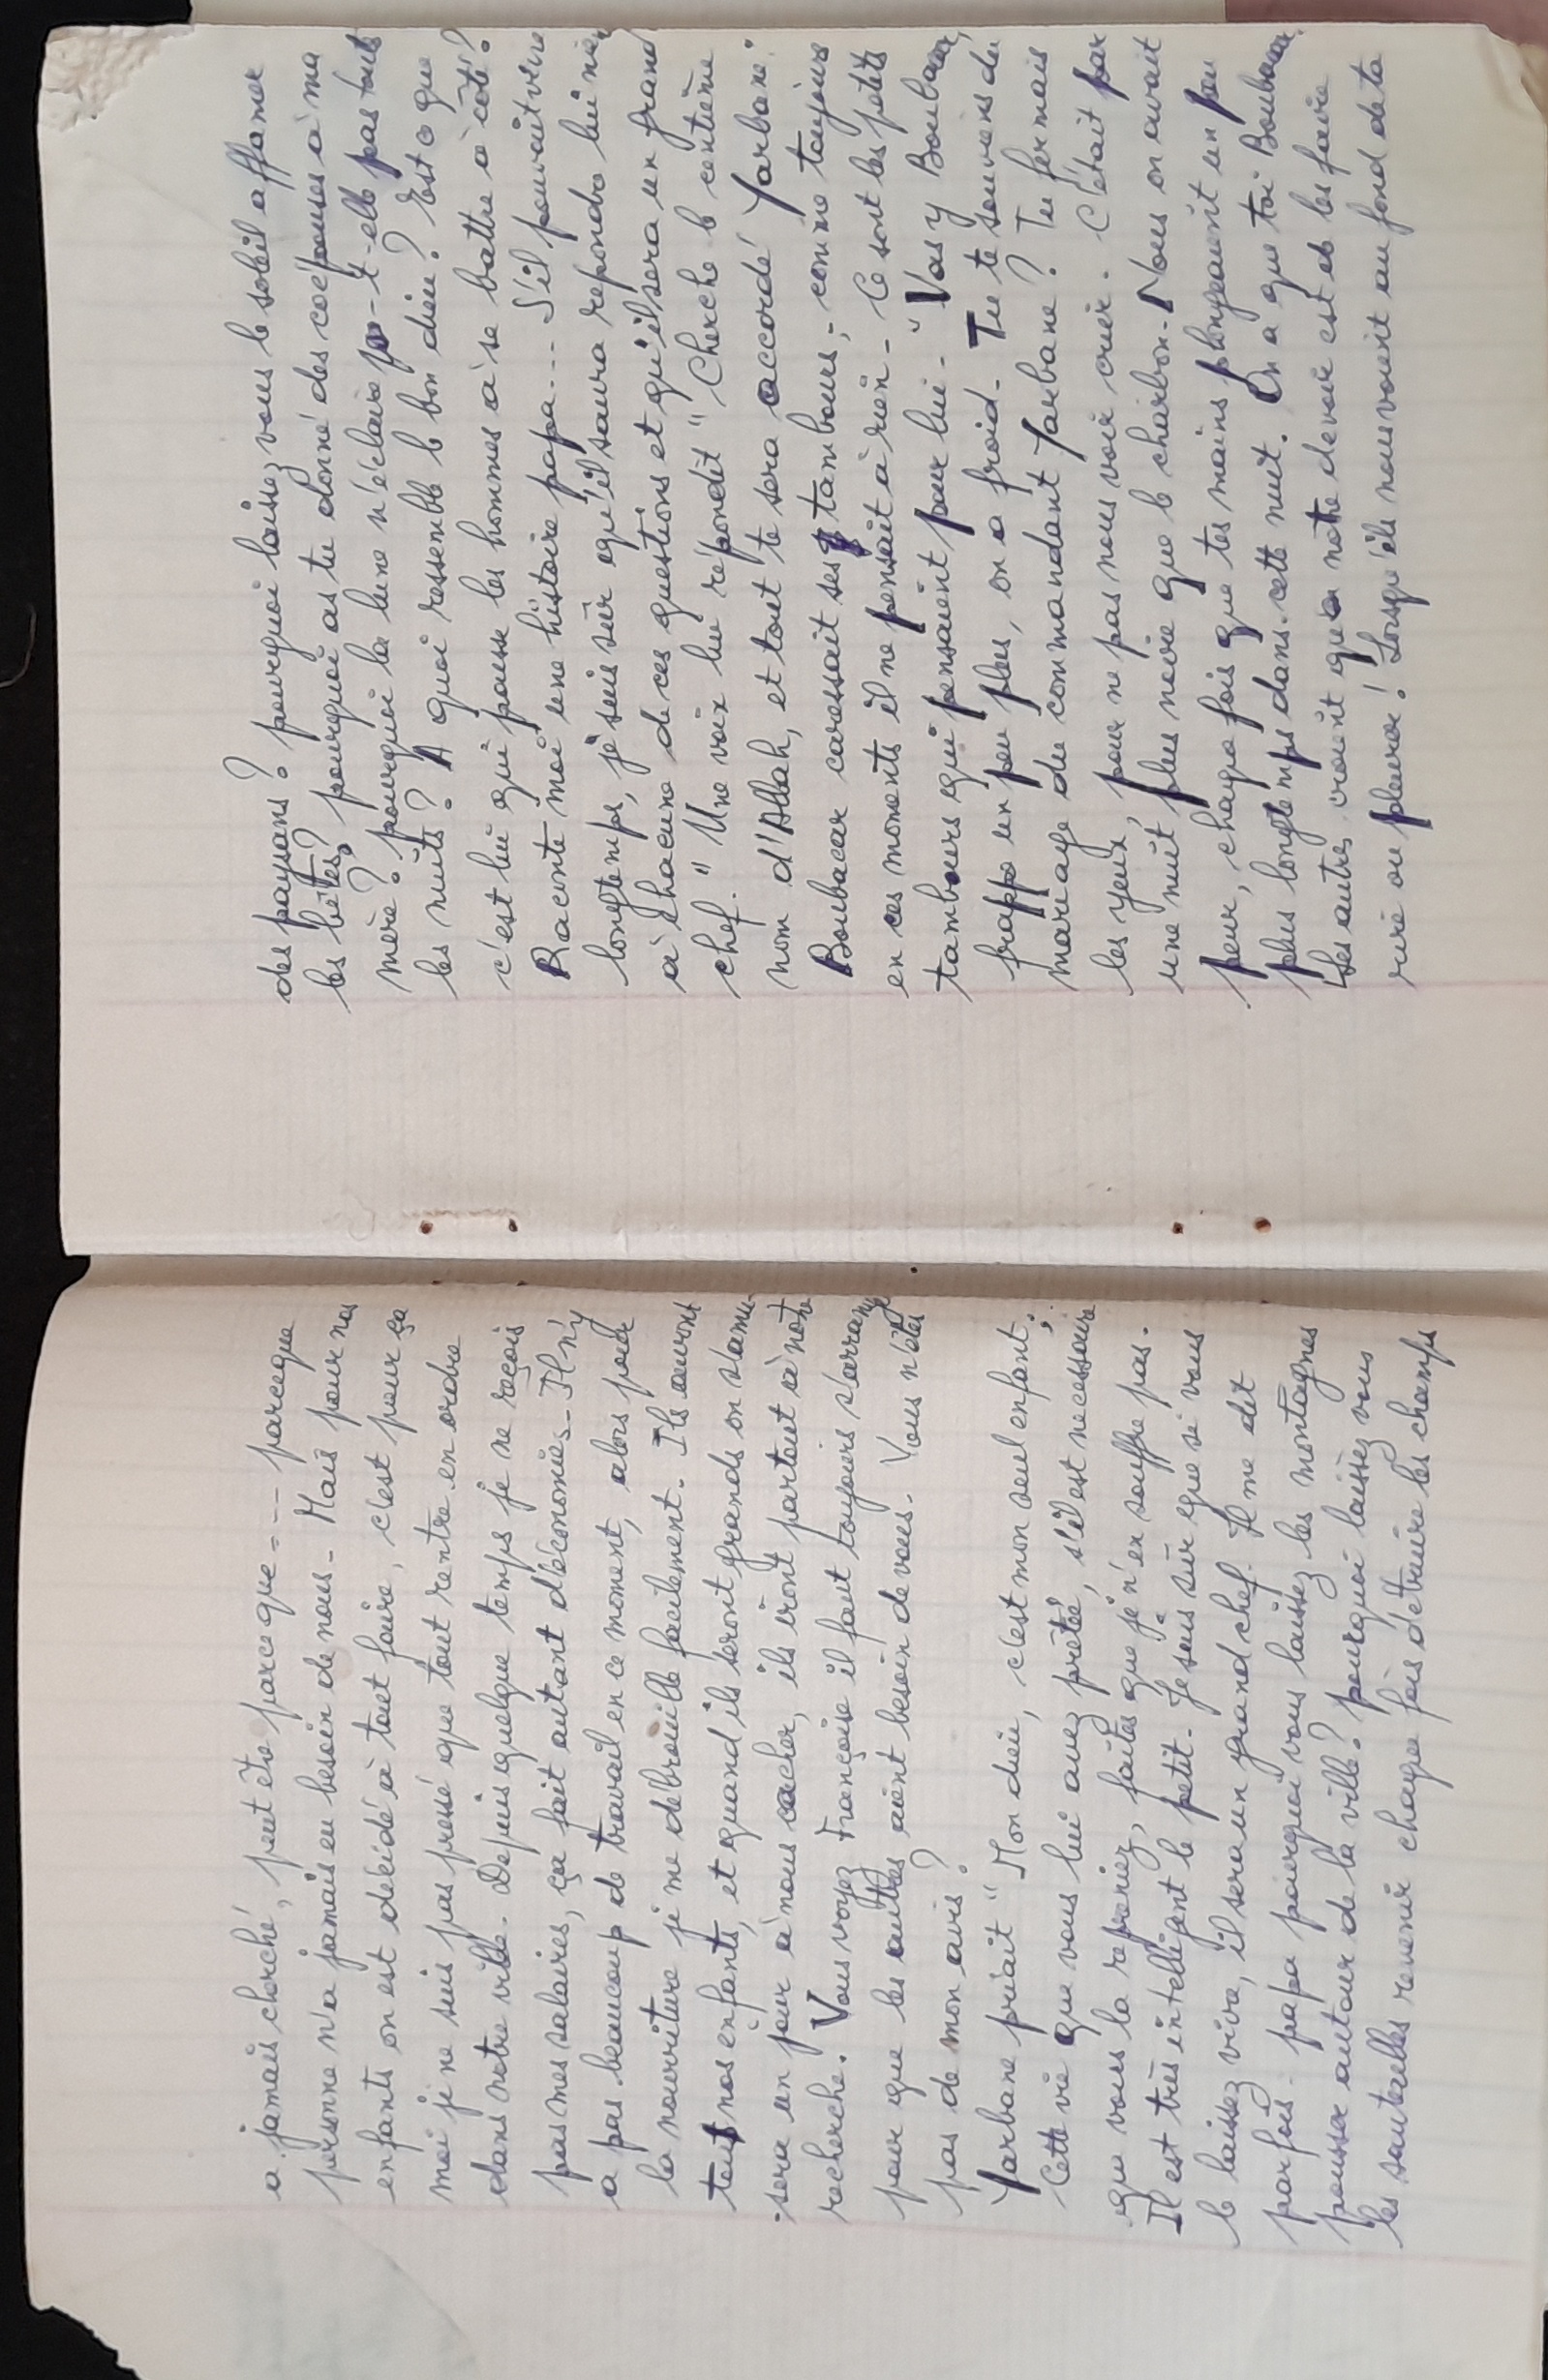 a jamais cherché, peut être parce que --- parceque
personne n'a jamais eu besoin de nous - Mais pour nos
enfants on est décidé à tout faire, c'est pour ça
moi je ne suis pas pressé que tout rentre en ordre
dans notre ville. Depuis quelque temps je ne reçois
pas mes salaires, ça fait autant d'économies - Il n'y
a pas beaucoup de travail en ce moment, alors pour
la nourriture je me débrouille facilement. Ils auront
tout nos enfants, et quand ils seront grands on s'amu-
sera un jour à nous cacher, ils iront partout à notre
recherche. Vous voyez Françoise il faut toujours s'arranger
pour que les autres aient besoin de vous. Vous n'êtes
pas de mon avis?
Yarbane priait " Mon dieu, c'est mon seul enfant;
Cette vie que vous lui avez prêtée, s'il est necessaire
que vous la repreniez, faites que je n'en souffre pas.
Il est très intelligent le petit. Je suis sûr que si vous
le laissez vivre, il sera un grand chef. Il me dit
parfois - papa pourquoi vous laissez les montagnes
pousser autour de la ville? pourquoi laissez vous
les sauterelles revenir chaque fois détruire les champs
des paysans? pourquoi laissez vous le soleil affamer
les bêtes? pourquoi as tu donné des coépouses à ma
mère? pourquoi la lune n'éclaire-t-elle pas touts
les nuits? A quoi ressemble le bon dieu? Est ce que
c'est lui qui pousse les hommes à se battre à côté?
Raconte moi une histoire papa... S'il pouvait vivre
longtemps, je suis sûr qu'il saura repondre lui même
à chacune de ces questions et qu'il sera un grand
chef." Une voix lui répondit " Cherche le centième
nom d'Allah, et tout te sera accordé Yarbane:
Boubacar caressait ses tambours; - comme toujours
en ces moments il ne pensait à rien - Ce sont les petits
tambours qui pensaient pour lui - " Vas y Boubacar,
frappe un peu plus, on a froid - Tu te souviens du
mariage du commandant Yarbane? Tu fermais
les yeux, pour ne pas nous voir crier. C'était par
une nuit plus noire que le charbon - Nous on avait
peur, chaque fois que tes mains plongeaient un peu
plus longtemps dans cette nuit. On a que toi Boubacar.
Les autres croient que notre devoir est de les faire
rire ou pleurer! Lorsqu'ils nous voient au fond de ta